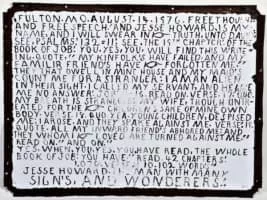 FULTON, MO. AUGUST. 14, 1976. FREE THOUGHT
AND FREE SPEECH. AND JESSE HOWARD. IS MY
NAME, AND I WILL SWEAR IN TRUTH, UNTO
SEE PSALMS, 132=11: SEE THE 19TH CHAPTER OF THE
BOOK OF JOB: YOU, YES, YOU, WILL FIND THIS WRIT=
ING, QUOTE: "MY KINFOLKS HAVE FAILED, AND MY
FAMILIAR FRIENDS HAVE FORGOTTEN ME."
THEY THAT DWELL IN MINE HOUSE AND MY MAID'S
COUNT ME FOR A STRANGER: I AM AN
IN THEIR SIGHT: I CALLED MY SERVANT, AND HE GAVE
ME NO ANSWER: READ ON, VERSE.
MY BREATH IS STRANGE TO MY WIFE, THOUGH I INTR=
EATED FOR THE CHILDREN'S SAKE OF MINE OWN
BODY: VERSE 18, QUO, YEA, YOUNG CHILDREN, DESPISED
ME; I AROSE, AND THEY SPAKE AGAINST ME. VERSE 19,
QUOTE: ALL MY INWARD FRIENDS ABHORED ME: AND
THEY WHOM I LOVED ARE TURNED AGAINST ME"
READ ON." AND ON."
YES, WHEN, YOU, YES, YOU HAVE READ, THE WHOLE
BOOK OF JOB: YOU HAVE READ, 42 CHAPTERS:
10,102, WORDS.
JESSE HOWARD. MAN WITH MANY
SIGN'S, AND WONDERS.